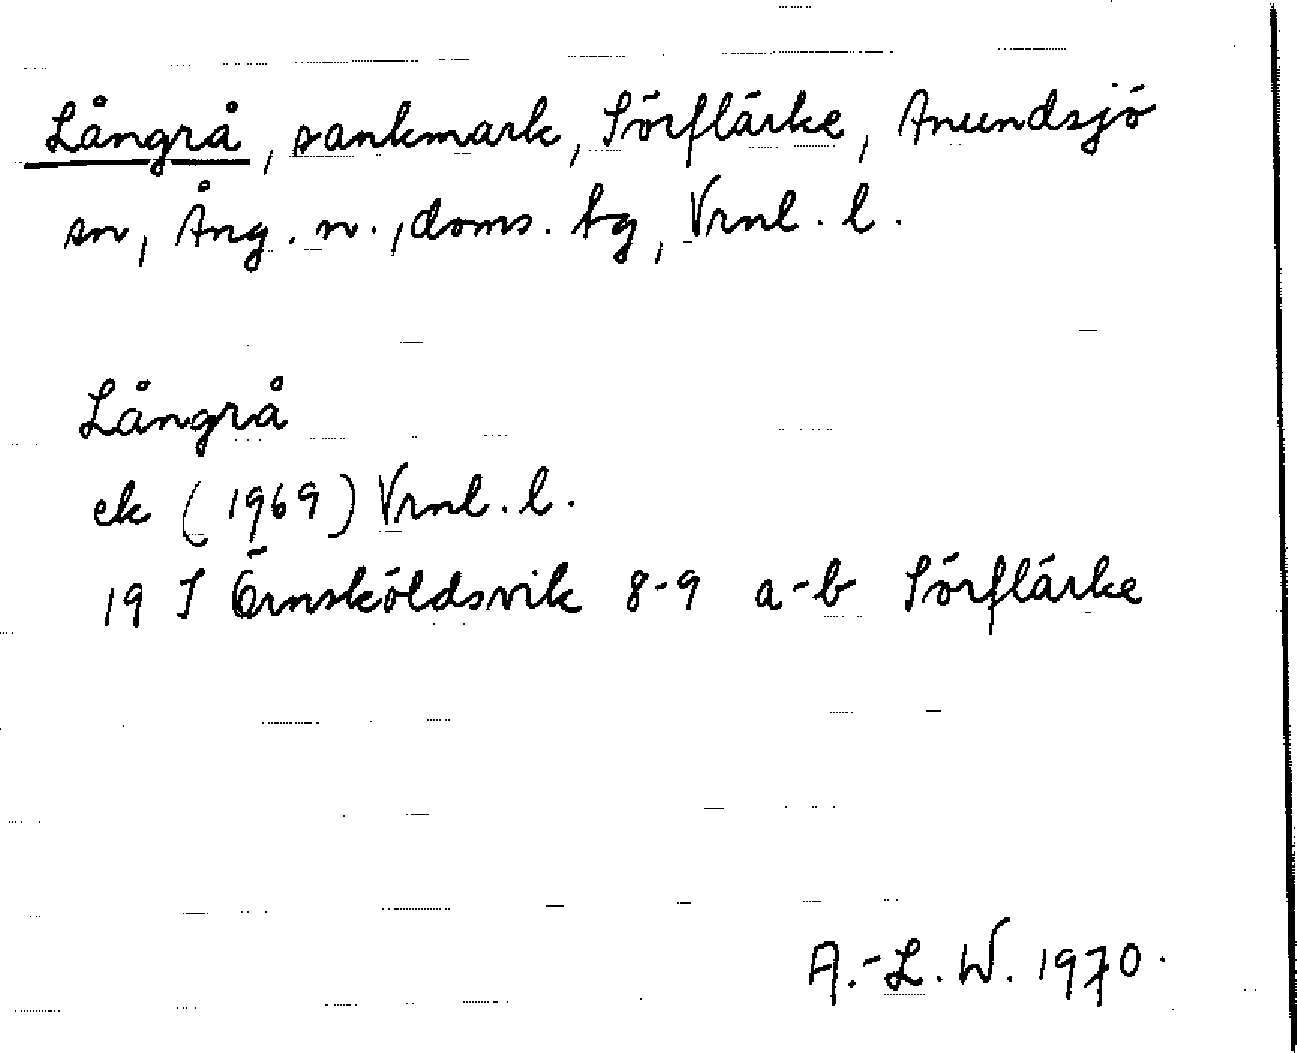 Långrå, sankmark, Sörflärke, Anundsjö
sn, Ång. n., doms. tg, Vrnl. l.
Långrå
ek (1969) Vrnl. l.
19 I Örnsköldsvik 8-9 a-b Sörflärke
A.-L. W. 1970.